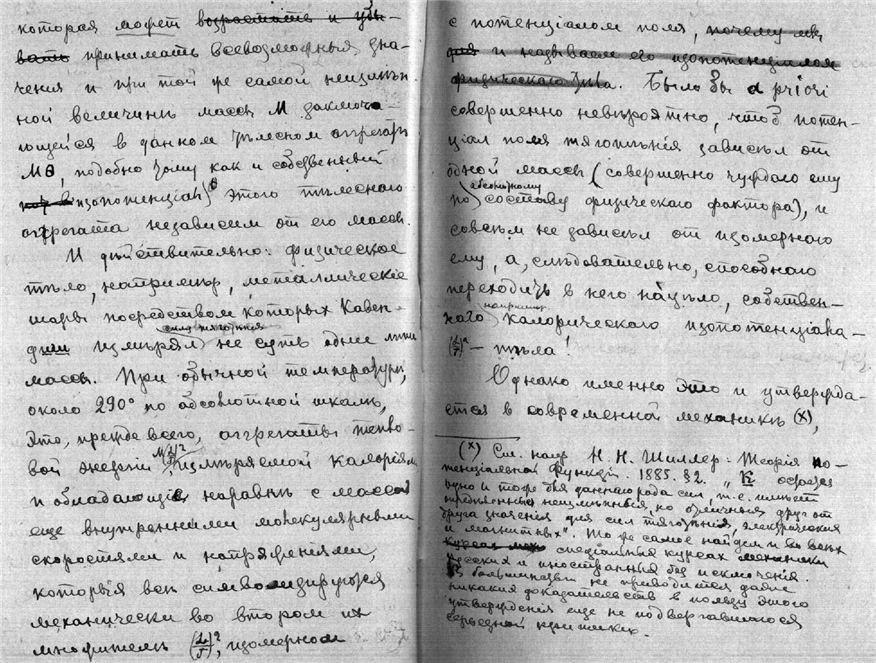 которая может возрастать и убы-
вать принимать всевозможныя зна-
ченія и при той же самой неизмѣн-
ной величинѣ массы М заключа-
ющейся в данном тѣлесном аггрегатѣ
Мθ, подобно тому как и собственный
изопотенціал этого тѣлеснаго
аггрегата независим от его массы.
И дѣйствительно: физическое
тѣло, напримѣр, металлическіе
шары посредством которых Кавен-
силу тяготѣнія
диш измѣрял не суть одне лиши
массы. При обычной температурѣ,
около 290° по абсолютной шкалѣ,
это, прежде всего, аггрегаты тепло-
вой энергіи измѣряемой калоріями
и обладающіе наравнѣ с массой
еще внутренними молекулярными
скоростями и напряженіями,
которыя всѣ символизируются
механически во втором их
множителѣ (L/T)², изомерном
с потенціалом поля, почему мы
и называем его изопотенціалом
физическаго тѣла. Было бы a priori
совершенно невѣроятно, чтоб потен-
ціал поля тяготѣнія зависѣл от
одной массы (совершенно чуждаго ему
абсолютному
по составу физическаго фактора), и
совсѣм не зависѣл от изомернаго
ему, а, слѣдовательно, способнаго
переходить в него нацѣло, собствен-
например
наго калорическаго изопотенціала
(L/T)² – тѣла!
Однако именно это и утвержда-
ется в современной механикѣ (х),
(х) См. напр. Н. Н. Шиллер. Теорія по-
тенціальной функціи. 1885. §2. „К остается
одно и то же для даннаго рода сил, т. е. имѣет
опредѣленныя неизмѣнныя, но отличныя друг от
друга значенія для сил тяготѣнія, электрических
и магнитных". То же самое найдем и во всѣх
спеціальных курсах механики
русских и иностранных без исключенія.
В большинствѣ не приводится даже
никаких доказательств в пользу этого
утвержденія еще не подвергавшагося
серьезной критикѣ.